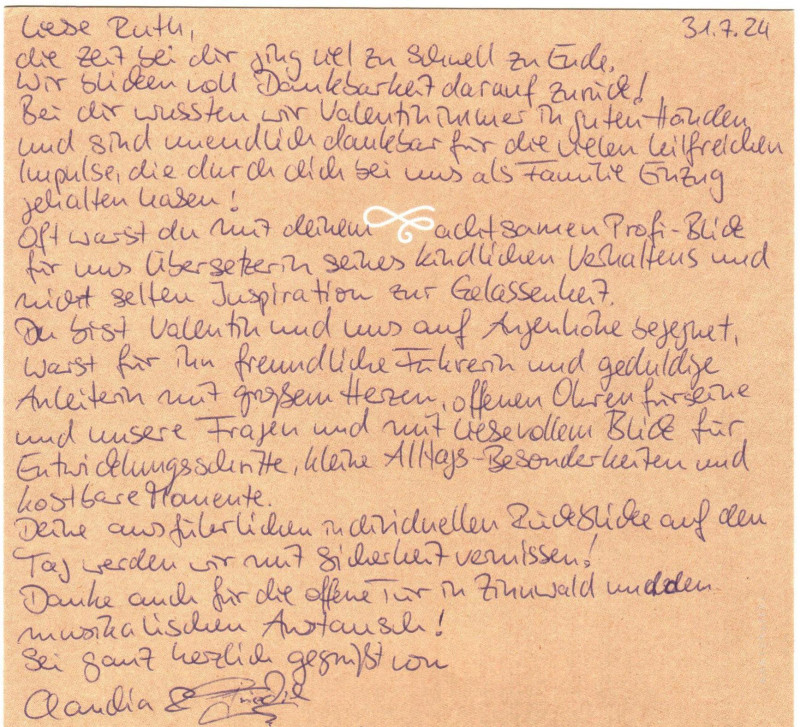 31.7.24
Liebe Ruth,
die Zeit bei dir ging viel zu schnell zu Ende.
Wir blicken voll Dankbarkeit darauf zurück!
Bei dir wussten wir Valentin immer in guten Händen
und sind unendlich dankbar für die vielen hilfreichen
Impulse, die durch dich bei uns als Familie Einzug
gehalten haben!
Oft warst du mit deinem achtsamen Profi-Blick
für uns Übersetzerin seines kindlichen Verhaltens und
nicht selten Inspiration zur Gelassenheit.
Du bist Valentin und uns auf Augenhöhe begegnet,
warst für ihn freundliche Führerin und geduldige
Anleiterin mit großem Herzen, offenen Ohren für seine
und unsere Fragen und mit liebevollem Blick für
Entwicklungsschritte, kleine Alltags-Besonderheiten und
kostbare Momente.
Deine ausführlichen individuellen Rückblicke auf den
Tag werden wir mit Sicherheit vermissen!
Danke auch für die offene Tür in Zinnwald und den
musikalischen Austausch!
Sei ganz herzlich gegrüßt von
Claudia &